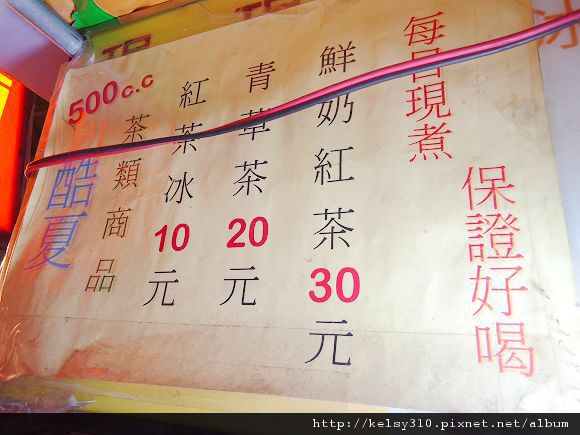 每日現煮
保證好喝
鮮奶紅茶30元
青草茶20元
紅茶冰10元
茶類商品
500c.c
酷夏
冰
http://kelsy310.pixnet.net/album